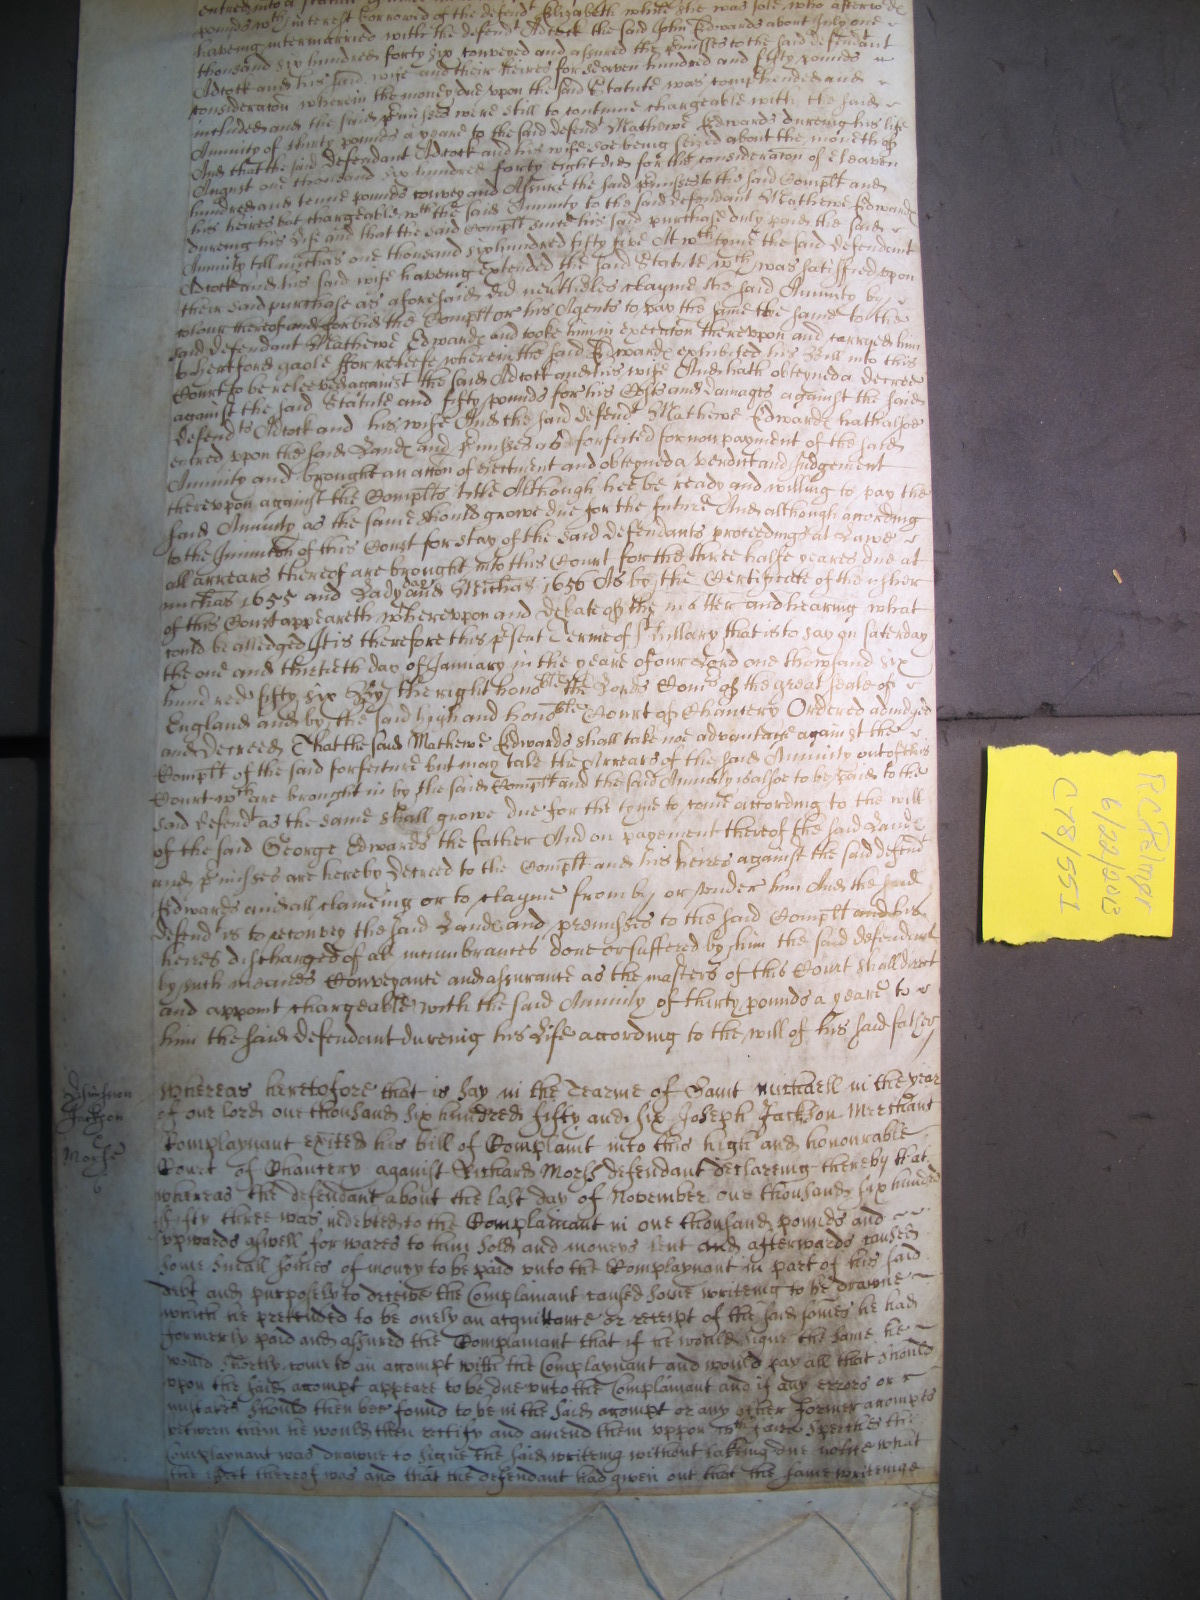 entred into a Statute
pounds wth interest borrowed of the defendt Elizabeth while she was sole, who afterwds
haveing intermarried with the defendt Adcock the said John Edwards about July one
thousand six hundred forty six conveyed and assured the pmisses to the said defendant
Adcock and his said wife and their heires for Seaven hundred and fifty pounds
consideracon wherein the money due upon the said Statute was comprehended and
included and the said pmisses were still to continue chargeable with the said
Annuity of thirty pounds a yeare to the said defendt Mathewe Edwards dureing his life
And that the said defendant Adcock and his wife soe being seized about the moneth of
August one thousand six hundred forty eight did for the consideracon of eleaven
hundred and tenne pounds convey and Assure the said pmisses to the said Complt and
his heires but chargeable wth the said Annuity to the said defendant Mathewe Edwards
dureing his Life and that the said Complt since his said purchase duly paid the said
Annuity till michas one thousand six hundred fifty five At wch tyme the said defendant
Adcock and his said wife haveing extended the said Statute wch was satisfied upon
their said purchase as aforesaid did neverthelesse clayme the said Annuity by
colour thereof and forbid the Complt or his Agents to pay the same the same to the
said defendant Mathewe Edwards and tooke him in execucon thereupon and carryed him
to hertford gaole ffor releefe wherein the said Edwards exhibited his Bill into this
Court to be releeved against the said Adcock and his wife And hath obteyned a decree
against the said Statute and fifty pounds for his Costs and damages against the said
defendts Adcock and his wife And the said defendt Mathewe Edwards hath alsoe
entred upon the said Lands and pmisses as forfeited for non payment of the said
Annuity and brought an accon of eiectment and obteyned a verdict and Judgement
thereupon against the Complts title Although hee be ready and willing to pay the
said Annuity as the same should growe due for the future And although according
to the Iniunccon of this Court for stay of the said defendants proceedings at Lawe
all arrears thereof are brought into this Court for the three halfe yeares due at
michas 1655 and Lady day and Michas 1656 As by the Certificate of the usher
of this Court appeareth whereupon and debate of the matter and hearing what
could be alledged It is therefore this psent Terme of St hillary that is to say on Saterday
the one and thirtieth day of January in the yeare of our Lord one thousand six
hundred fifty six By the right honoble the Lords Comrs of the great seale of
England and by the said high and honoble Court of Chancery Ordered adiudged
and Decreed That the said Mathewe Edwards shall take noe advantage against the
Complt of the said forfeiture but may take the Arrears of the said Annuity out of this
Court wch are brought in by the said Complt and the said Annuity is alsoe to be paid to the
said defendt as the same shall growe due for the tyme to come according to the will
of the said George Edwards the father And on payement thereof the said Lands
and pmisses are hereby decreed to the Complt and his heires against the said defendt
Edwards and all claimeing or to clayme from by or under him And the said
defendt is to reconvey the said Lands and premisses to the said Complt and his
heires discharged of all incumbrances done or suffered by him the said defendant
by such meanes Conveyance and assurance as the masters of this Court shall direct
and appoint chargeable with the said Annuity of thirty pounds a yeare to
him the said defendant dureing his Life according to the will of his said father
Jackson
Morse
Whereas heretofore that is say in the Tearme of Saint Michaell in the year
of our lord one thousand six hundred fifty and six Joseph Jackson Merchant
Complaynant exited his bill of Complaint into this high and honourable
Court of Chancery against Richard Morse defendant declareing thereby that
whereas the defendant about the last day of November one thousand six hundred
fifty three was indebted to the Complainant in one thousand pounds and
upwards aswell for wares to him sold and moneys lent and afterwards caused
some small somes of money to be paid unto the Complaynant in part of his said
debt and purposely to deceive the Complainant caused some writeing to be drawne
which he pretended to be onely an acquittance or receipt of the said somes he had
formerly paid and assured the Complainant that if he would signe the same he
would shortly come to an accompt with the Complaynant and would pay all that should
upon the said accompt appeare to be due unto the Complainant and if any errors or
mistakes should then bee found to be in the said accompt or any other former accompts
between them he would then rectify and amend them uppon wch faire speeches the
Complaynant was drawne to signe the said writeing without takeing due notice what
the effect thereof was and that the defendant had given out that the same writeinge
RC Palmer
6/22/2013
C78/551